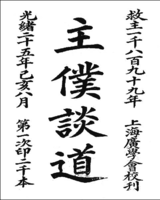 救主一千八百九十九年
上海廣學會校刊
主僕談道
光緒二十五年己亥八月
第一次印二千本